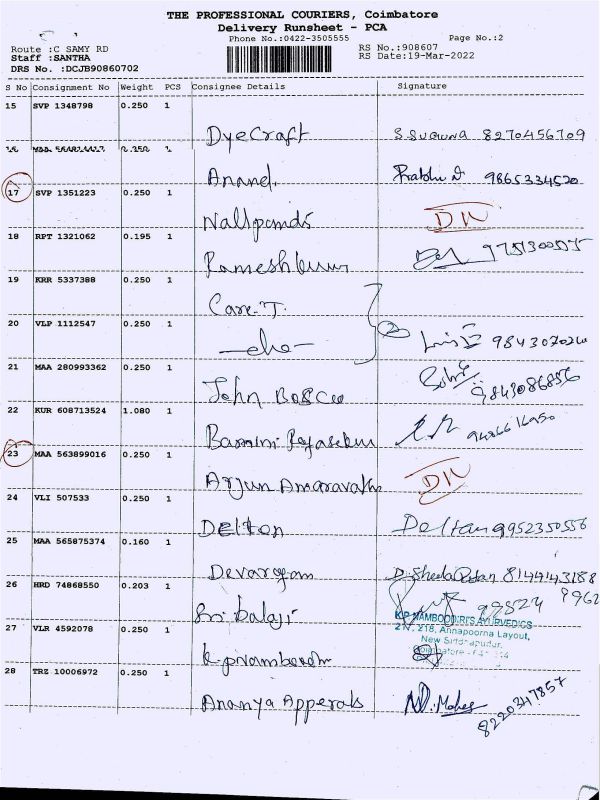 THE PROFESSIONAL COURIERS, Coimbatore
Delivery Runsheet - PCA
Phone No.:0422-3505555 Page No.:2
Route :C SAMY RD RS No.:908607
Staff :SANTHA RS Date:19-Mar-2022
DRS No. :DCJB90860702
S No Consignment No Weight PCS Consignee Details Signature
15 SVP 1348798 0.250 1
DyeCraft S.Suguna 8270456709
16 MAA 0.250 1
Anand. Prabhu 9865334520
17 SVP 1351223 0.250 1
Nallpandi DN
18 RPT 1321062 0.195 1
Rameshkumar 9751300555
19 KRR 5337388 0.250 1
Care.T.
20 VLP 1112547 0.250 1
-do- 2
21 MAA 280993362 0.250 1
John Bosco 9843086856
22 KUR 608713524 1.080 1
Bamini Rajasekar
23 MAA 563899016 0.250 1
Arjun Amaravathi DN
24 VLI 507533 0.250 1
Delton Deltan 9952350556
25 MAA 565875374 0.160 1
Devarajan 8144143188
26 HRD 74868550 0.203 1
Sri balaji
K.P.NAMBOODIRI'S AYURVEDICS
27 VLR 4592078 0.250 1
218, Annapoorna Layout,
New Siddhapudur,
K.pnamboodri
28 TRZ 10006972 0.250 1
Ananya Apperals 8220347857